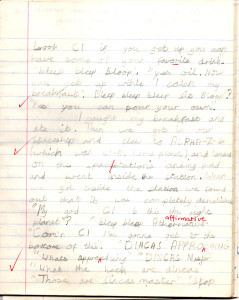 Look C1 if you get up you can
have some of your favorite drink.
bleep bleep bloop. "yes oil. Now
get up while I catch my
breakfast. Bleep bleep bleep ble bloop?
Yes you can pour your own.
I caught my breakfast and
ate it. Then we got in our
spaceship and flew to ALPHA-
(which was our planet) and landed
on the space station's landing pad
and went inside the station. When
we got inside the station we found
out that it was completely demolished
"My and C1 is this the right
planet?" "bleep bleep
affirmative
"Come C1 I'm gonna get to the
bottom of this. "DINGAS APPROACHING
"Whats approaching" "DINGAS Master
"What the heck are dingas
Those are dingas master bloop